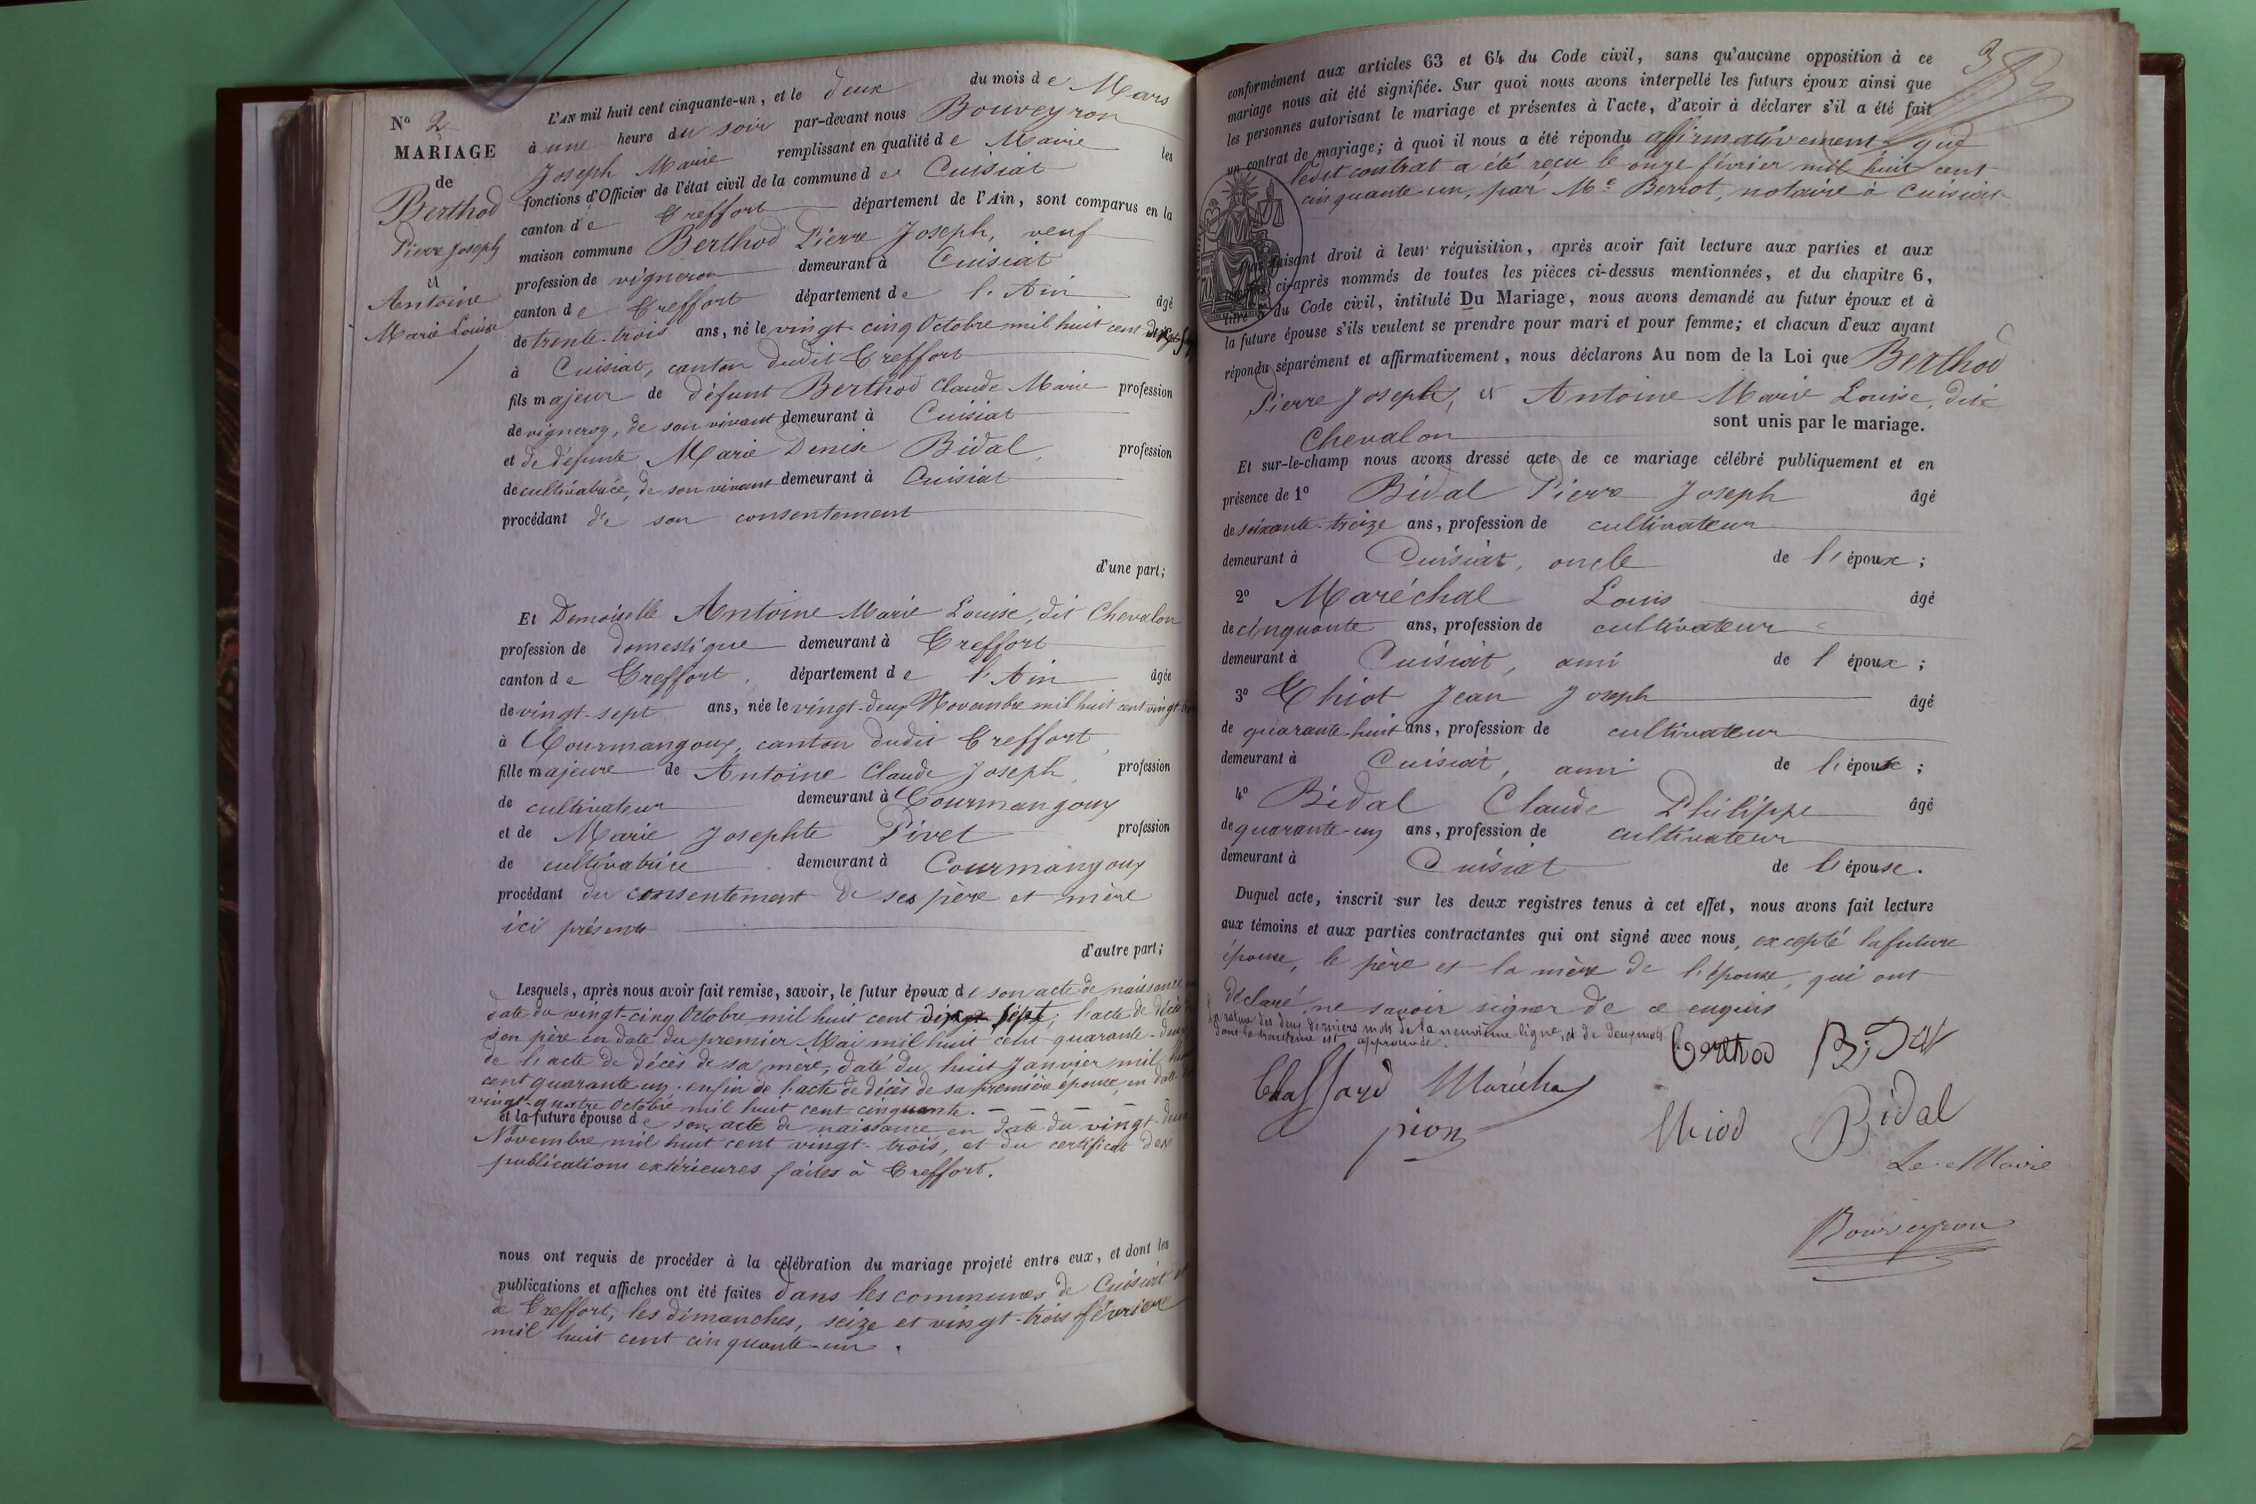 Nº 2
MARIAGE
de
Berthod
Pierre Joseph
et
Antoine
Marie Louise
L'AN mil huit cent cinquante-un, et le deux du mois de Mars
à une heure du soir par-devant nous Bouveyron
Joseph Marie remplissant en qualité de Maire les
fonctions d'Officier de l'état civil de la commune de Cuisiat
canton de Treffort département de l'Ain, sont comparus en la
maison commune Berthod Pierre Joseph, veuf
profession de vigneron demeurant à Cuisiat
canton de Treffort département de l'Ain âgé
de trente-trois ans, né le vingt-cinq Octobre mil huit cent dix sept
à Cuisiat, canton dudit Treffort
fils majeur de défunt Berthod Claude Marie profession
de vigneron, de son vivant demeurant à Cuisiat
et de défunte Marie Denise Bidal, profession
de cultivatrice, de son vivant demeurant à Cuisiat
procédant de son consentement
d'une part;
Et Demoiselle Antoine Marie Louise, dit Chevalon
profession de domestique demeurant à Treffort
canton de Treffort, département de l'Ain âgée
de vingt-sept ans, née le vingt-deux Novembre mil huit cent vingt
à Courmangoux, canton dudit Treffort,
fille majeure de Antoine Claude Joseph, profession
de cultivateur demeurant à Courmangoux
et de Marie Josephte Pivet profession
de cultivatrice demeurant à Courmangoux
procédant du consentement de ses père et mère
ici présents
d'autre part;
Lesquels, après nous avoir fait remise, savoir, le futur époux de son acte de naissance
date du vingt-cinq Octobre mil huit cent dix sept; l'acte de décès
son père en date du premier Mai mil huit cent quarante-deux
de l'acte de décès de sa mère, daté du huit Janvier mil huit
cent quarante un. enfin de l'acte de décès de sa première épouse, en date
vingt-quatre Octobre mil huit cent cinquante.
et la future épouse de son acte de naissance en date du vingt-deux
Novembre mil huit cent vingt-trois, et du certificat des
publications extérieures faites à Treffort.
nous ont requis de procéder à la célébration du mariage projeté entre eux, et dont les
publications et affiches ont été faites dans les communes de Cuisiat et
de Treffort, les dimanches, seize et vingt-trois février
mil huit cent cinquante-un.
3
conformément aux articles 63 et 64 du Code civil, sans qu'aucune opposition à ce
mariage nous ait été signifiée. Sur quoi nous avons interpellé les futurs époux ainsi que
les personnes autorisant le mariage et présentes à l'acte, d'avoir à déclarer s'il a été fait
un contrat de mariage; à quoi il nous a été répondu affirmativement que
ledit contrat a été reçu le onze février mil huit cent
cinquante-un, par Me Berrot, notaire à Cuisiat
faisant droit à leur réquisition, après avoir fait lecture aux parties et aux
ci-après nommés de toutes les pièces ci-dessus mentionnées, et du chapitre 6,
titre 5 du Code civil, intitulé Du Mariage, nous avons demandé au futur époux et à
la future épouse s'ils veulent se prendre pour mari et pour femme; et chacun d'eux ayant
répondu séparément et affirmativement, nous déclarons Au nom de la Loi que Berthod
Pierre Joseph, et Antoine Marie Louise, dit
Chevalon sont unis par le mariage.
Et sur-le-champ nous avons dressé acte de ce mariage célébré publiquement et en
présence de 1º Bidal Pierre Joseph âgé
de soixante-treize ans, profession de cultivateur
demeurant à Cuisiat, oncle de l'époux;
2º Maréchal Louis âgé
de cinquante ans, profession de cultivateur
demeurant à Cuisiat, ami de l'époux;
3º Thiot Jean Joseph âgé
de quarante-huit ans, profession de cultivateur
demeurant à Cuisiat, ami de l'époux;
4º Bidal Claude Philippe âgé
de quarante-un ans, profession de cultivateur
demeurant à Cuisiat de l'épouse.
Duquel acte, inscrit sur les deux registres tenus à cet effet, nous avons fait lecture
aux témoins et aux parties contractantes qui ont signé avec nous, excepté la future
épouse, le père et la mère de l'épouse, qui ont
déclaré ne savoir signer de ce enquis
La rature des deux derniers mots de la neuvième ligne, et de deux mots
dans la trentième est approuvée.
Berthod Bidal
Chassard Maréchal
pion Thiod Bidal
Le Maire
Bouveyron